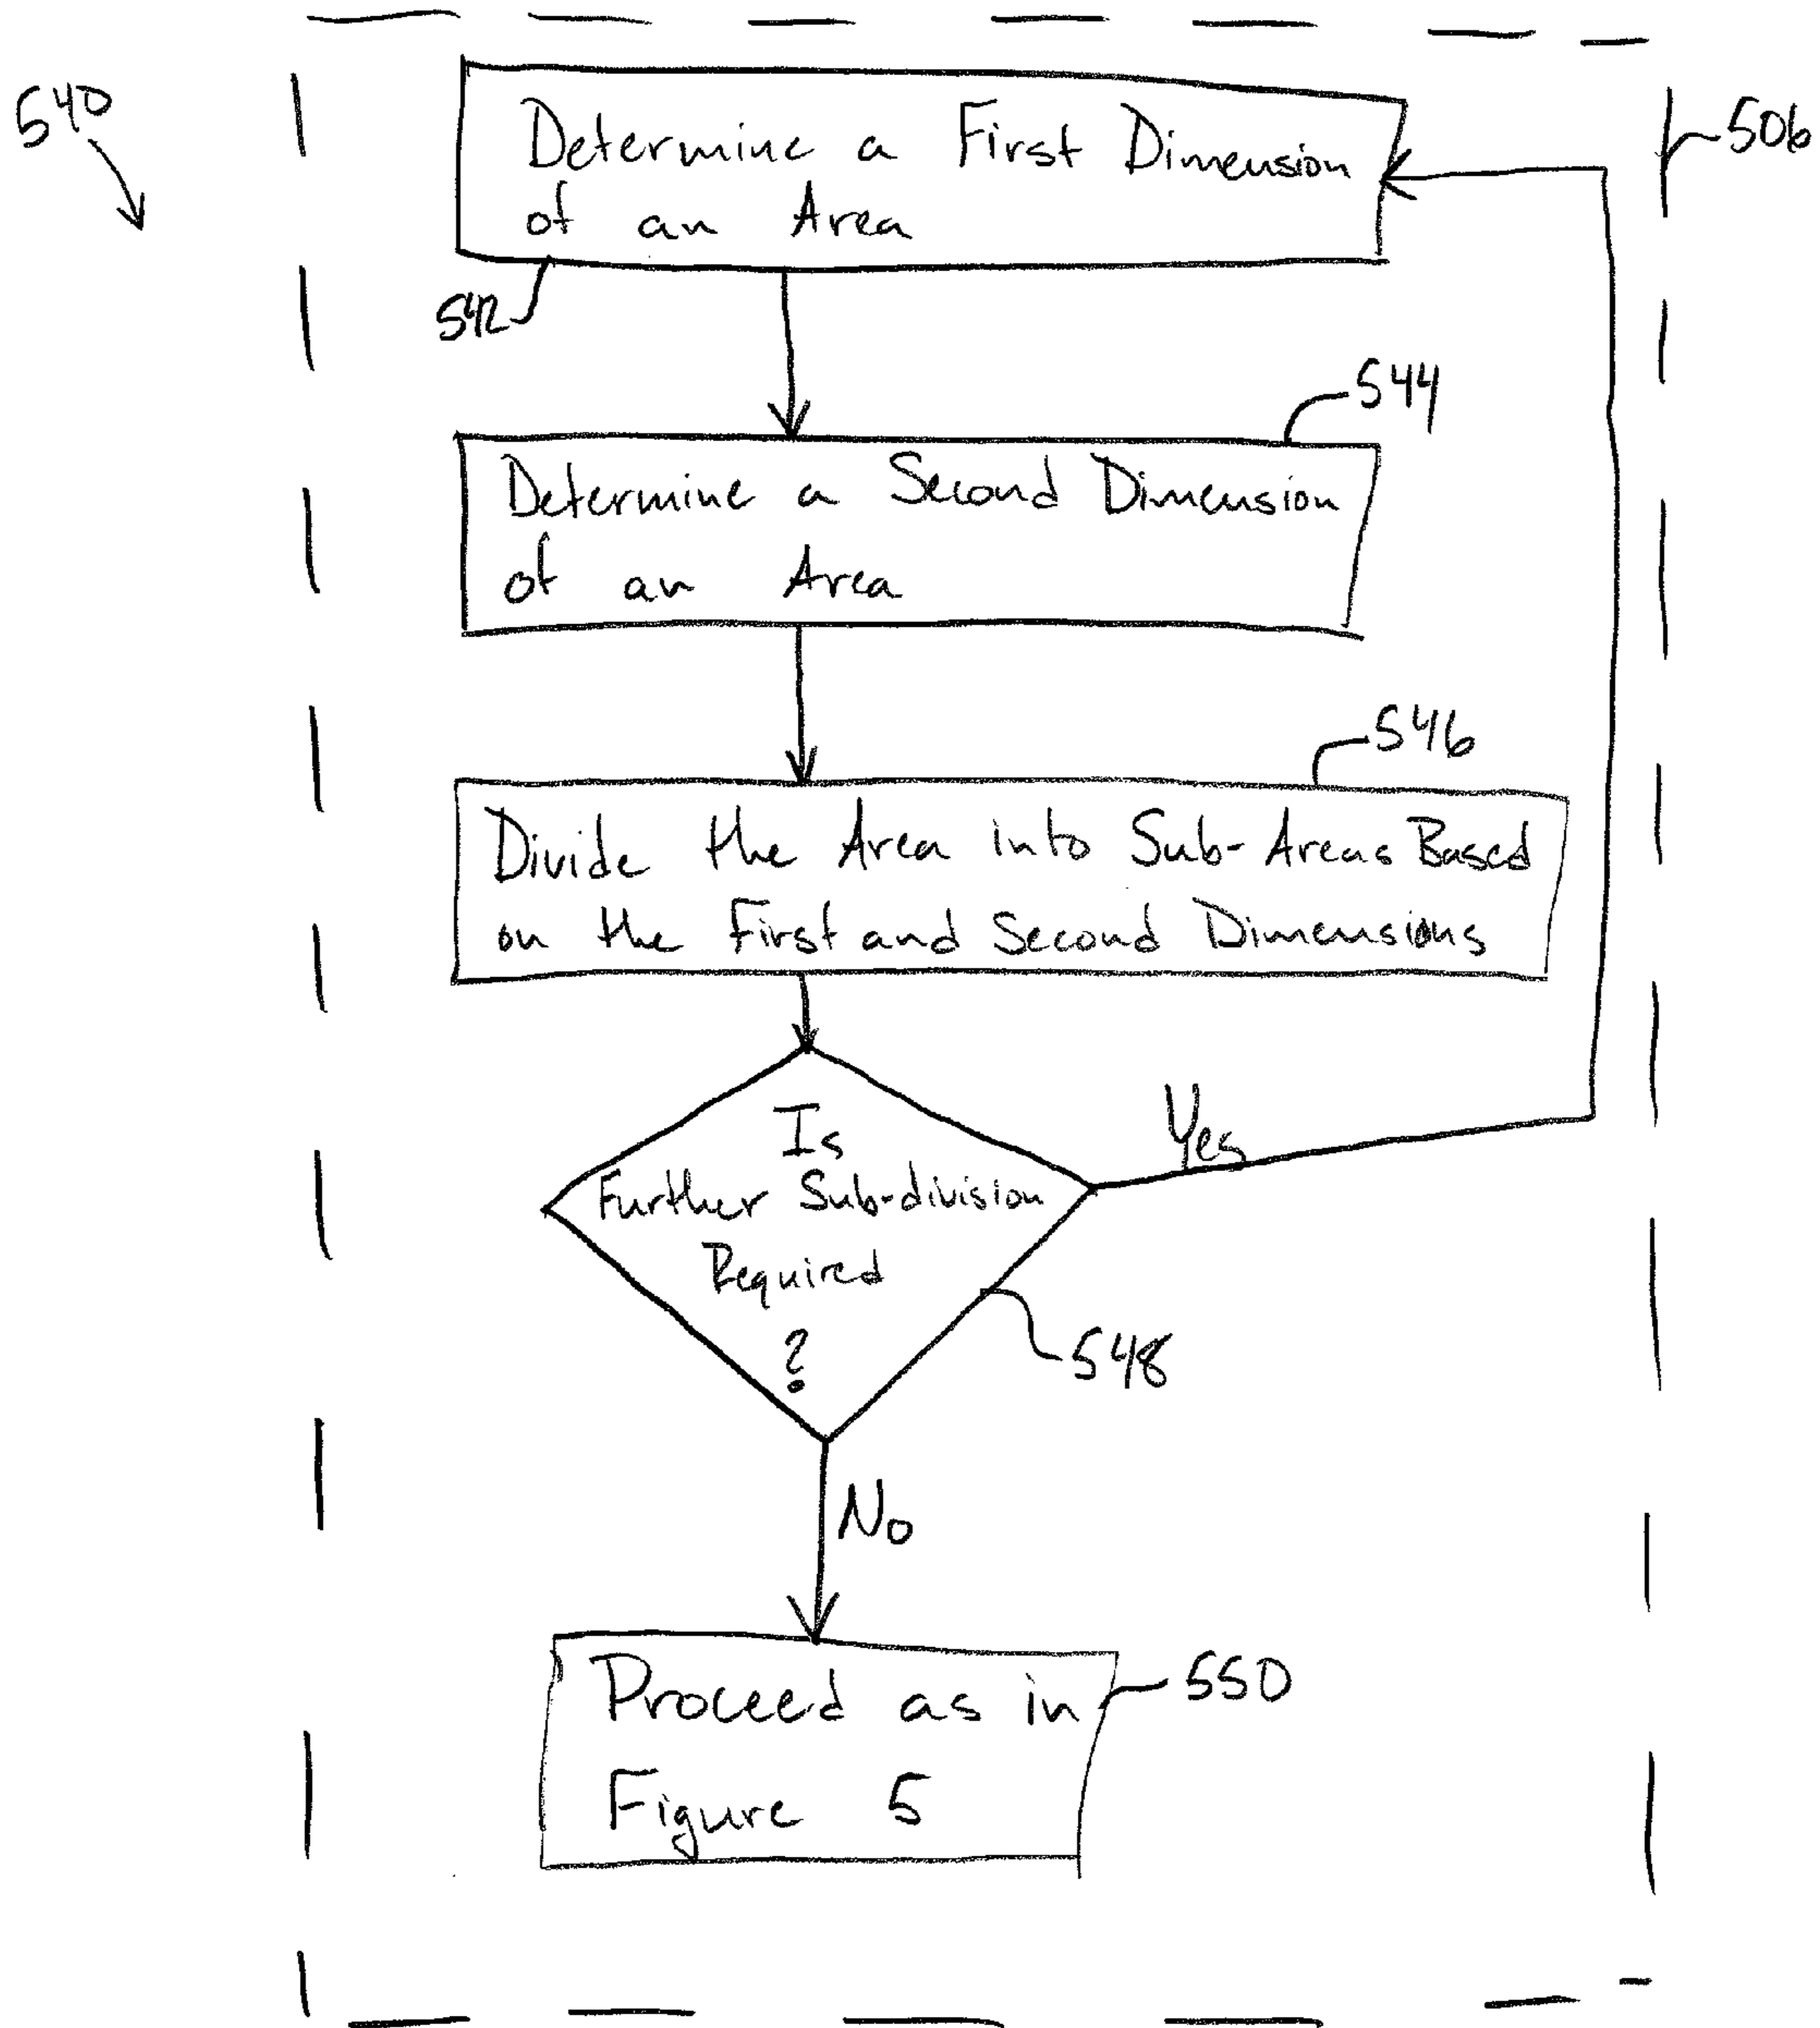 540
506
Determine a First Dimension
of an Area
542
544
Determine a Second Dimension
of an Area
546
Divide the Area into Sub-Areas Based
on the First and Second Dimensions
Is
Further Sub-division
Required
?
Yes
548
No
Proceed as in
Figure 5
550